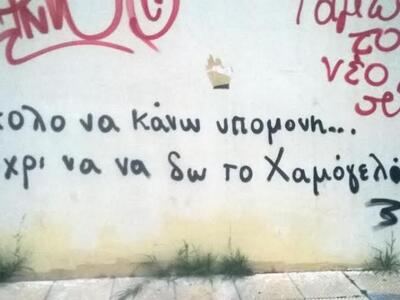 Γαμω
το
νεο
κολο να κάνω υπομονη...
χρι να να δω το Χαμόγελό